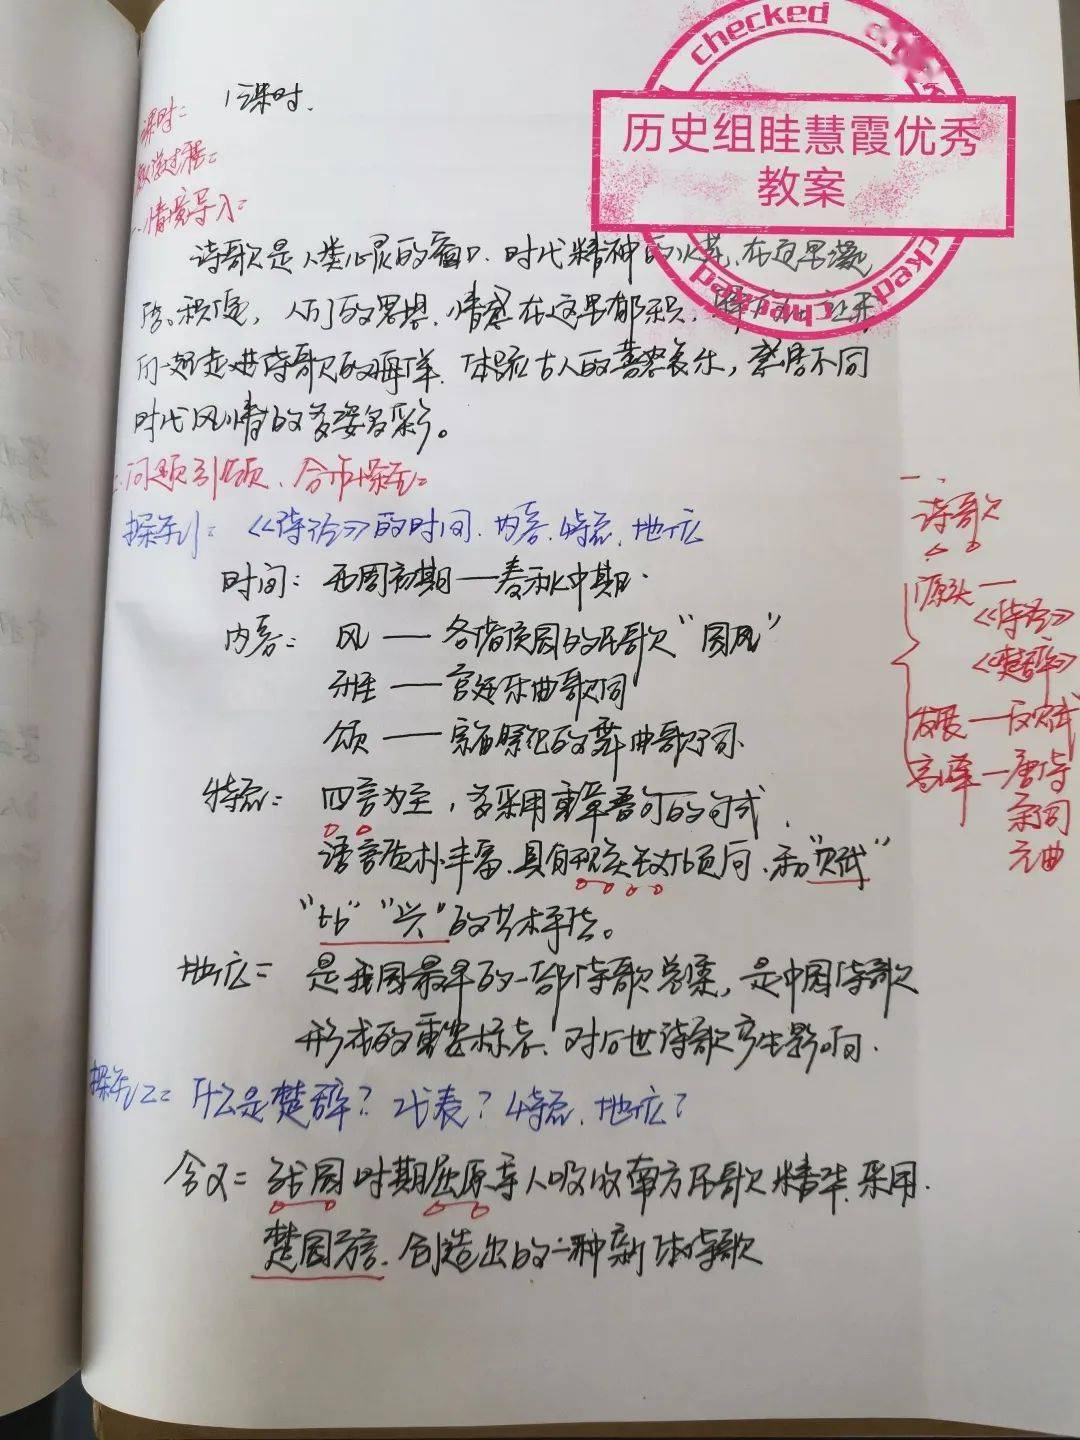 checked
历史组眭慧霞优秀
教案
checked
课时：1课时.
教学过程：
一、情境导入：
诗歌是人类心灵的窗口、时代精神的火花,在这里
积淀，人们的思想、情感在这里郁积、
们一起走进诗歌的海洋、体味古人的喜怒哀乐，感悟不同
时代风情的多姿多彩。
二、问题引领、合作探究：
探究1：《诗经》的时间、内容、特点、地位
时间：西周初期——春秋中期.
内容：风——各诸侯国的民歌“国风”
雅——宫廷乐曲歌词
颂——宗庙祭祀的舞曲歌词.
特点：四言为主，多采用重章叠句的句式、
语言质朴丰富、具有现实主义倾向、采用“赋”
“比”“兴”的艺术手法。
地位：是我国最早的一部诗歌总集，是中国诗歌
形成的重要标志、对后世诗歌产生影响.
探究2：什么是楚辞？代表？特点、地位？
含义：战国时期屈原等人吸收南方民歌精华、采用
楚国方言、创造出的一种新体诗歌
一、
诗歌
源头—
《诗经》
《楚辞》
发展—汉赋
高峰—唐诗
宋词
元曲